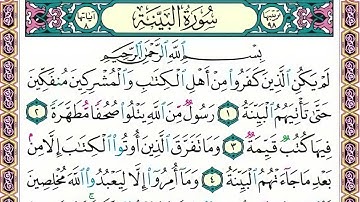 سُورَةُ الْبَيِّنَةِ
بِسْمِ ٱللَّهِ ٱلرَّحْمَٰنِ ٱلرَّحِيمِ
لَمْ يَكُنِ ٱلَّذِينَ كَفَرُوا۟ مِنْ أَهْلِ ٱلْكِتَٰبِ وَٱلْمُشْرِكِينَ مُنفَكِّينَ
حَتَّىٰ تَأْتِيَهُمُ ٱلْبَيِّنَةُ ١ رَسُولٌ مِّنَ ٱللَّهِ يَتْلُوا۟ صُحُفًا مُّطَهَّرَةً ٢
فِيهَا كُتُبٌ قَيِّمَةٌ ٣ وَمَا تَفَرَّقَ ٱلَّذِينَ أُوتُوا۟ ٱلْكِتَٰبَ إِلَّا مِنۢ
بَعْدِ مَا جَآءَتْهُمُ ٱلْبَيِّنَةُ ٤ وَمَآ أُمِرُوٓا۟ إِلَّا لِيَعْبُدُوا۟ ٱللَّهَ مُخْلِصِينَ